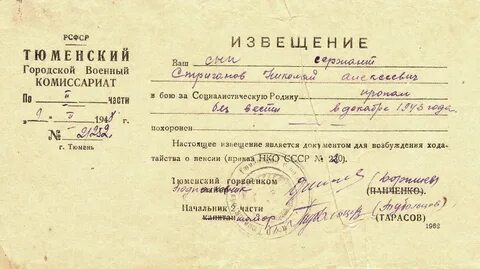 РСФСР
ТЮМЕНСКИЙ
Городской Военный
КОМИССАРИАТ
По II части
9 II 194
№ II 21282
г. Тюмень
ИЗВЕЩЕНИЕ
Ваш сын сержант
Стриганов Николай Алексеевич
в бою за Социалистическую Родину пропал
без вести в декабре 1943 года
похоронен
Настоящее извещение является документом для возбуждения хода-
тайства о пенсии (приказ НКО СССР №
Тюменский горвоенком
подполковник
(ПАНЧЕНКО)
Начальник 2 части
капитан майор
(ТАРАСОВ)
1962